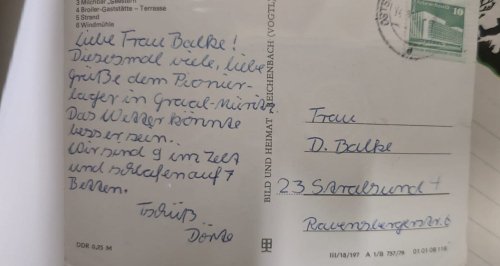 3 Milchbar „Seestern"
4 Broiler-Gaststätte – Terrasse
5 Strand
6 Windmühle
Liebe Frau Balke!
Diesesmal viele, liebe
Grüße dem Pionier-
lager in Graal-Müritz
Das Wetter könnte
besser sein.
Wir sind 9 im Zelt
und schlafen auf 7
Betten.
Tschüß
Dörte
DDR 0,25 M
BILD UND HEIMAT REICHENBACH (VOGTL
10
Frau
D. Balke
23 Stralsund
Ravensbergerstr. 6
III/18/197 A 1/B 737/78 01 01 08 118